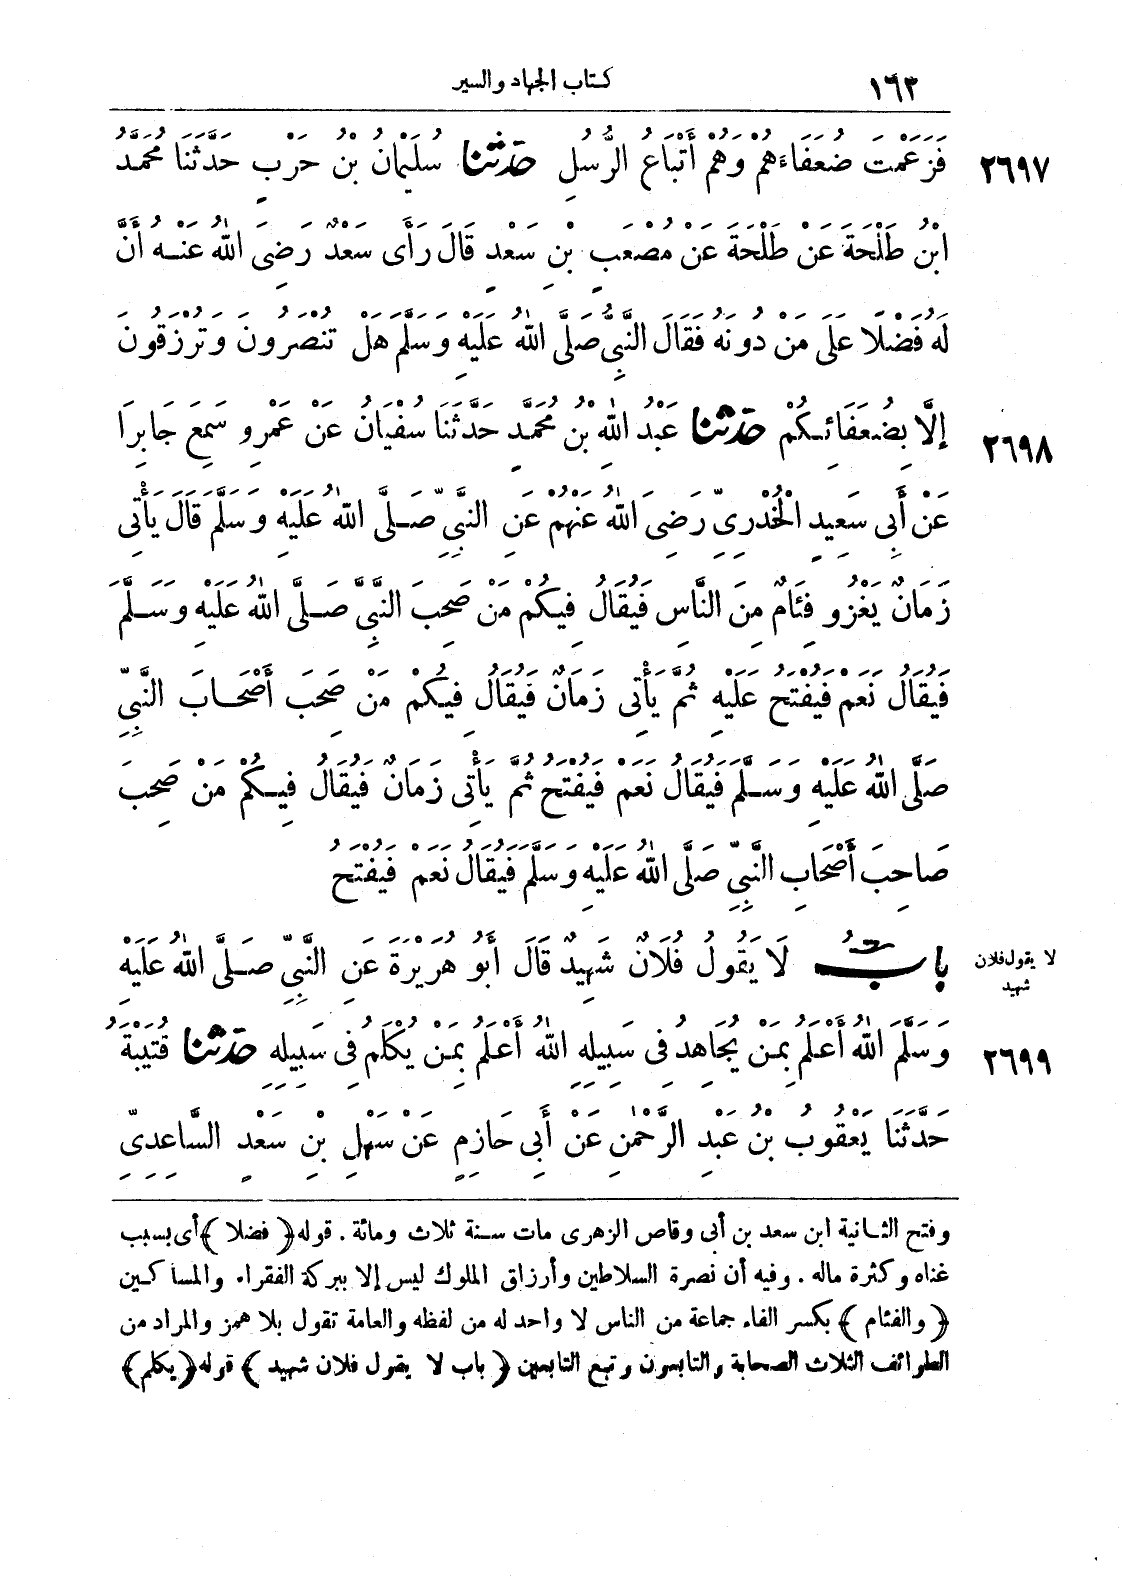 ١٦٣ كتاب الجهاد والسير
٢٦٩٧ فَزَعَمْتَ ضُعَفَاءَهُمْ وَهُمْ أَتْبَاعُ الرُّسُلِ حَدَّثَنَا سُلَيْمَانُ بْنُ حَرْبٍ حَدَّثَنَا مُحَمَّدُ
ابْنُ طَلْحَةَ عَنْ طَلْحَةَ عَنْ مُصْعَبِ بْنِ سَعْدٍ قَالَ رَأَى سَعْدٌ رَضِىَ اللهُ عَنْهُ أَنَّ
لَهُ فَضْلًا عَلَى مَنْ دُونَهُ فَقَالَ النَّبِىُّ صَلَّى اللهُ عَلَيْهِ وَسَلَّمَ هَلْ تُنْصَرُونَ وَتُرْزَقُونَ
٢٦٩٨ إِلَّا بِضُعَفَائِكُمْ حَدَّثَنَا عَبْدُ اللهِ بْنُ مُحَمَّدٍ حَدَّثَنَا سُفْيَانُ عَنْ عَمْرٍو سَمِعَ جَابِرًا
عَنْ أَبِى سَعِيدٍ الْخُدْرِىِّ رَضِىَ اللهُ عَنْهُمْ عَنِ النَّبِىِّ صَلَّى اللهُ عَلَيْهِ وَسَلَّمَ قَالَ يَأْتِى
زَمَانٌ يَغْزُو فِئَامٌ مِنَ النَّاسِ فَيُقَالُ فِيكُمْ مَنْ صَحِبَ النَّبِىَّ صَلَّى اللهُ عَلَيْهِ وَسَلَّمَ
فَيُقَالُ نَعَمْ فَيُفْتَحُ عَلَيْهِ ثُمَّ يَأْتِى زَمَانٌ فَيُقَالُ فِيكُمْ مَنْ صَحِبَ أَصْحَابَ النَّبِىِّ
صَلَّى اللهُ عَلَيْهِ وَسَلَّمَ فَيُقَالُ نَعَمْ فَيُفْتَحُ ثُمَّ يَأْتِى زَمَانٌ فَيُقَالُ فِيكُمْ مَنْ صَحِبَ
صَاحِبَ أَصْحَابِ النَّبِىِّ صَلَّى اللهُ عَلَيْهِ وَسَلَّمَ فَيُقَالُ نَعَمْ فَيُفْتَحُ
لا يقول فلان
شهيد
بَابٌ لَا يَقُولُ فُلَانٌ شَهِيدٌ قَالَ أَبُو هُرَيْرَةَ عَنِ النَّبِىِّ صَلَّى اللهُ عَلَيْهِ
٢٦٩٩ وَسَلَّمَ اللهُ أَعْلَمُ بِمَنْ يُجَاهِدُ فِى سَبِيلِهِ اللهُ أَعْلَمُ بِمَنْ يُكْلَمُ فِى سَبِيلِهِ حَدَّثَنَا قُتَيْبَةُ
حَدَّثَنَا يَعْقُوبُ بْنُ عَبْدِ الرَّحْمٰنِ عَنْ أَبِى حَازِمٍ عَنْ سَهْلِ بْنِ سَعْدٍ السَّاعِدِىِّ
وفتح الثانية ابن سعد بن أبى وقاص الزهرى مات سنة ثلاث ومائة . قوله ﴿ فضلا ﴾ أى بسبب
غناه وكثرة ماله . وفيه أن نصرة السلاطين وأرزاق الملوك ليس إلا ببركة الفقراء والمساكين
﴿ والفئام ﴾ بكسر الفاء جماعة من الناس لا واحد له من لفظه والعامة تقول بلا همز والمراد من
الطوائف الثلاث الصحابة والتابعون وتبع التابعين ﴿ باب لا يقول فلان شهيد ﴾ قوله ﴿ يكلم ﴾